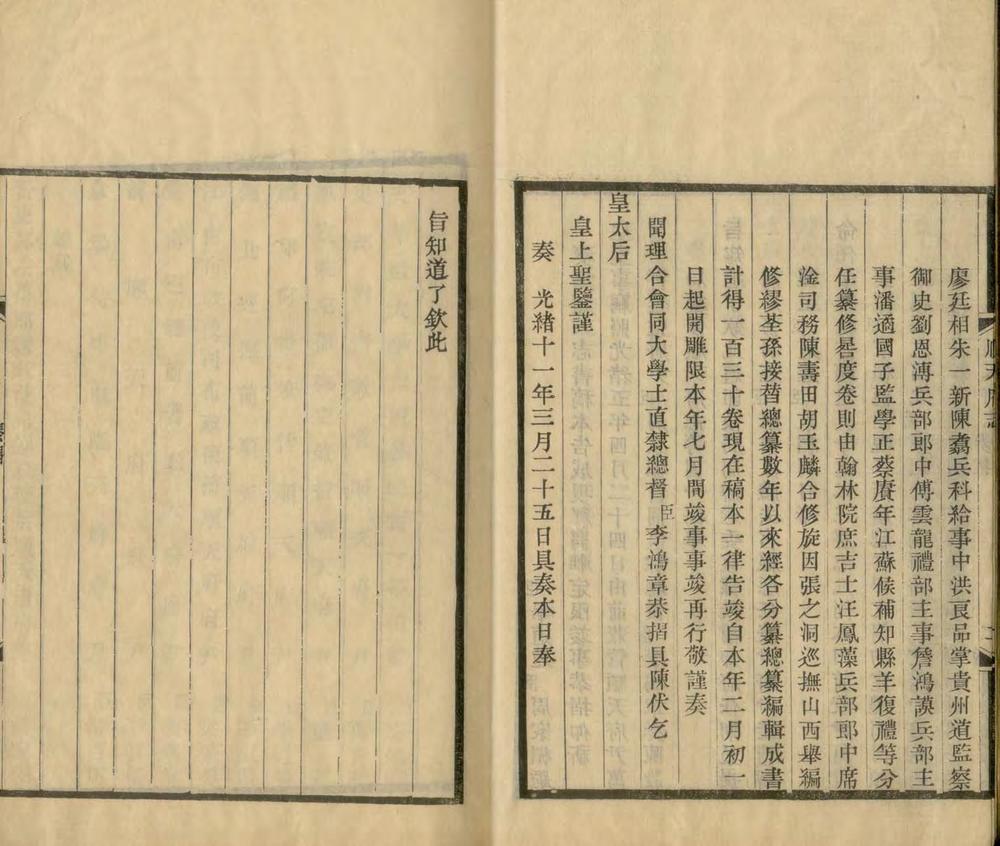 廖廷相朱一新陳翥兵科給事中洪良品掌貴州道監察
御史劉恩溥兵部郎中傅雲龍禮部主事詹鴻謨兵部主
事潘遹國子監學正蔡賡年江蘇候補知縣羊復禮等分
任纂修晷度卷則由翰林院庶吉士汪鳳藻兵部郎中席
淦司務陳壽田胡玉麟合修旋因張之洞巡撫山西舉編
修繆荃孫接替總纂數年以來經各分纂總纂編輯成書
計得一百三十卷現在稿本一律告竣自本年二月初一
日起開雕限本年七月間竣事事竣再行敬謹奏
聞理合會同大學士直隸總督臣李鴻章恭摺具陳伏乞
皇太后
皇上聖鑒謹
奏 光緒十一年三月二十五日具奏本日奉
旨知道了欽此
順天府志